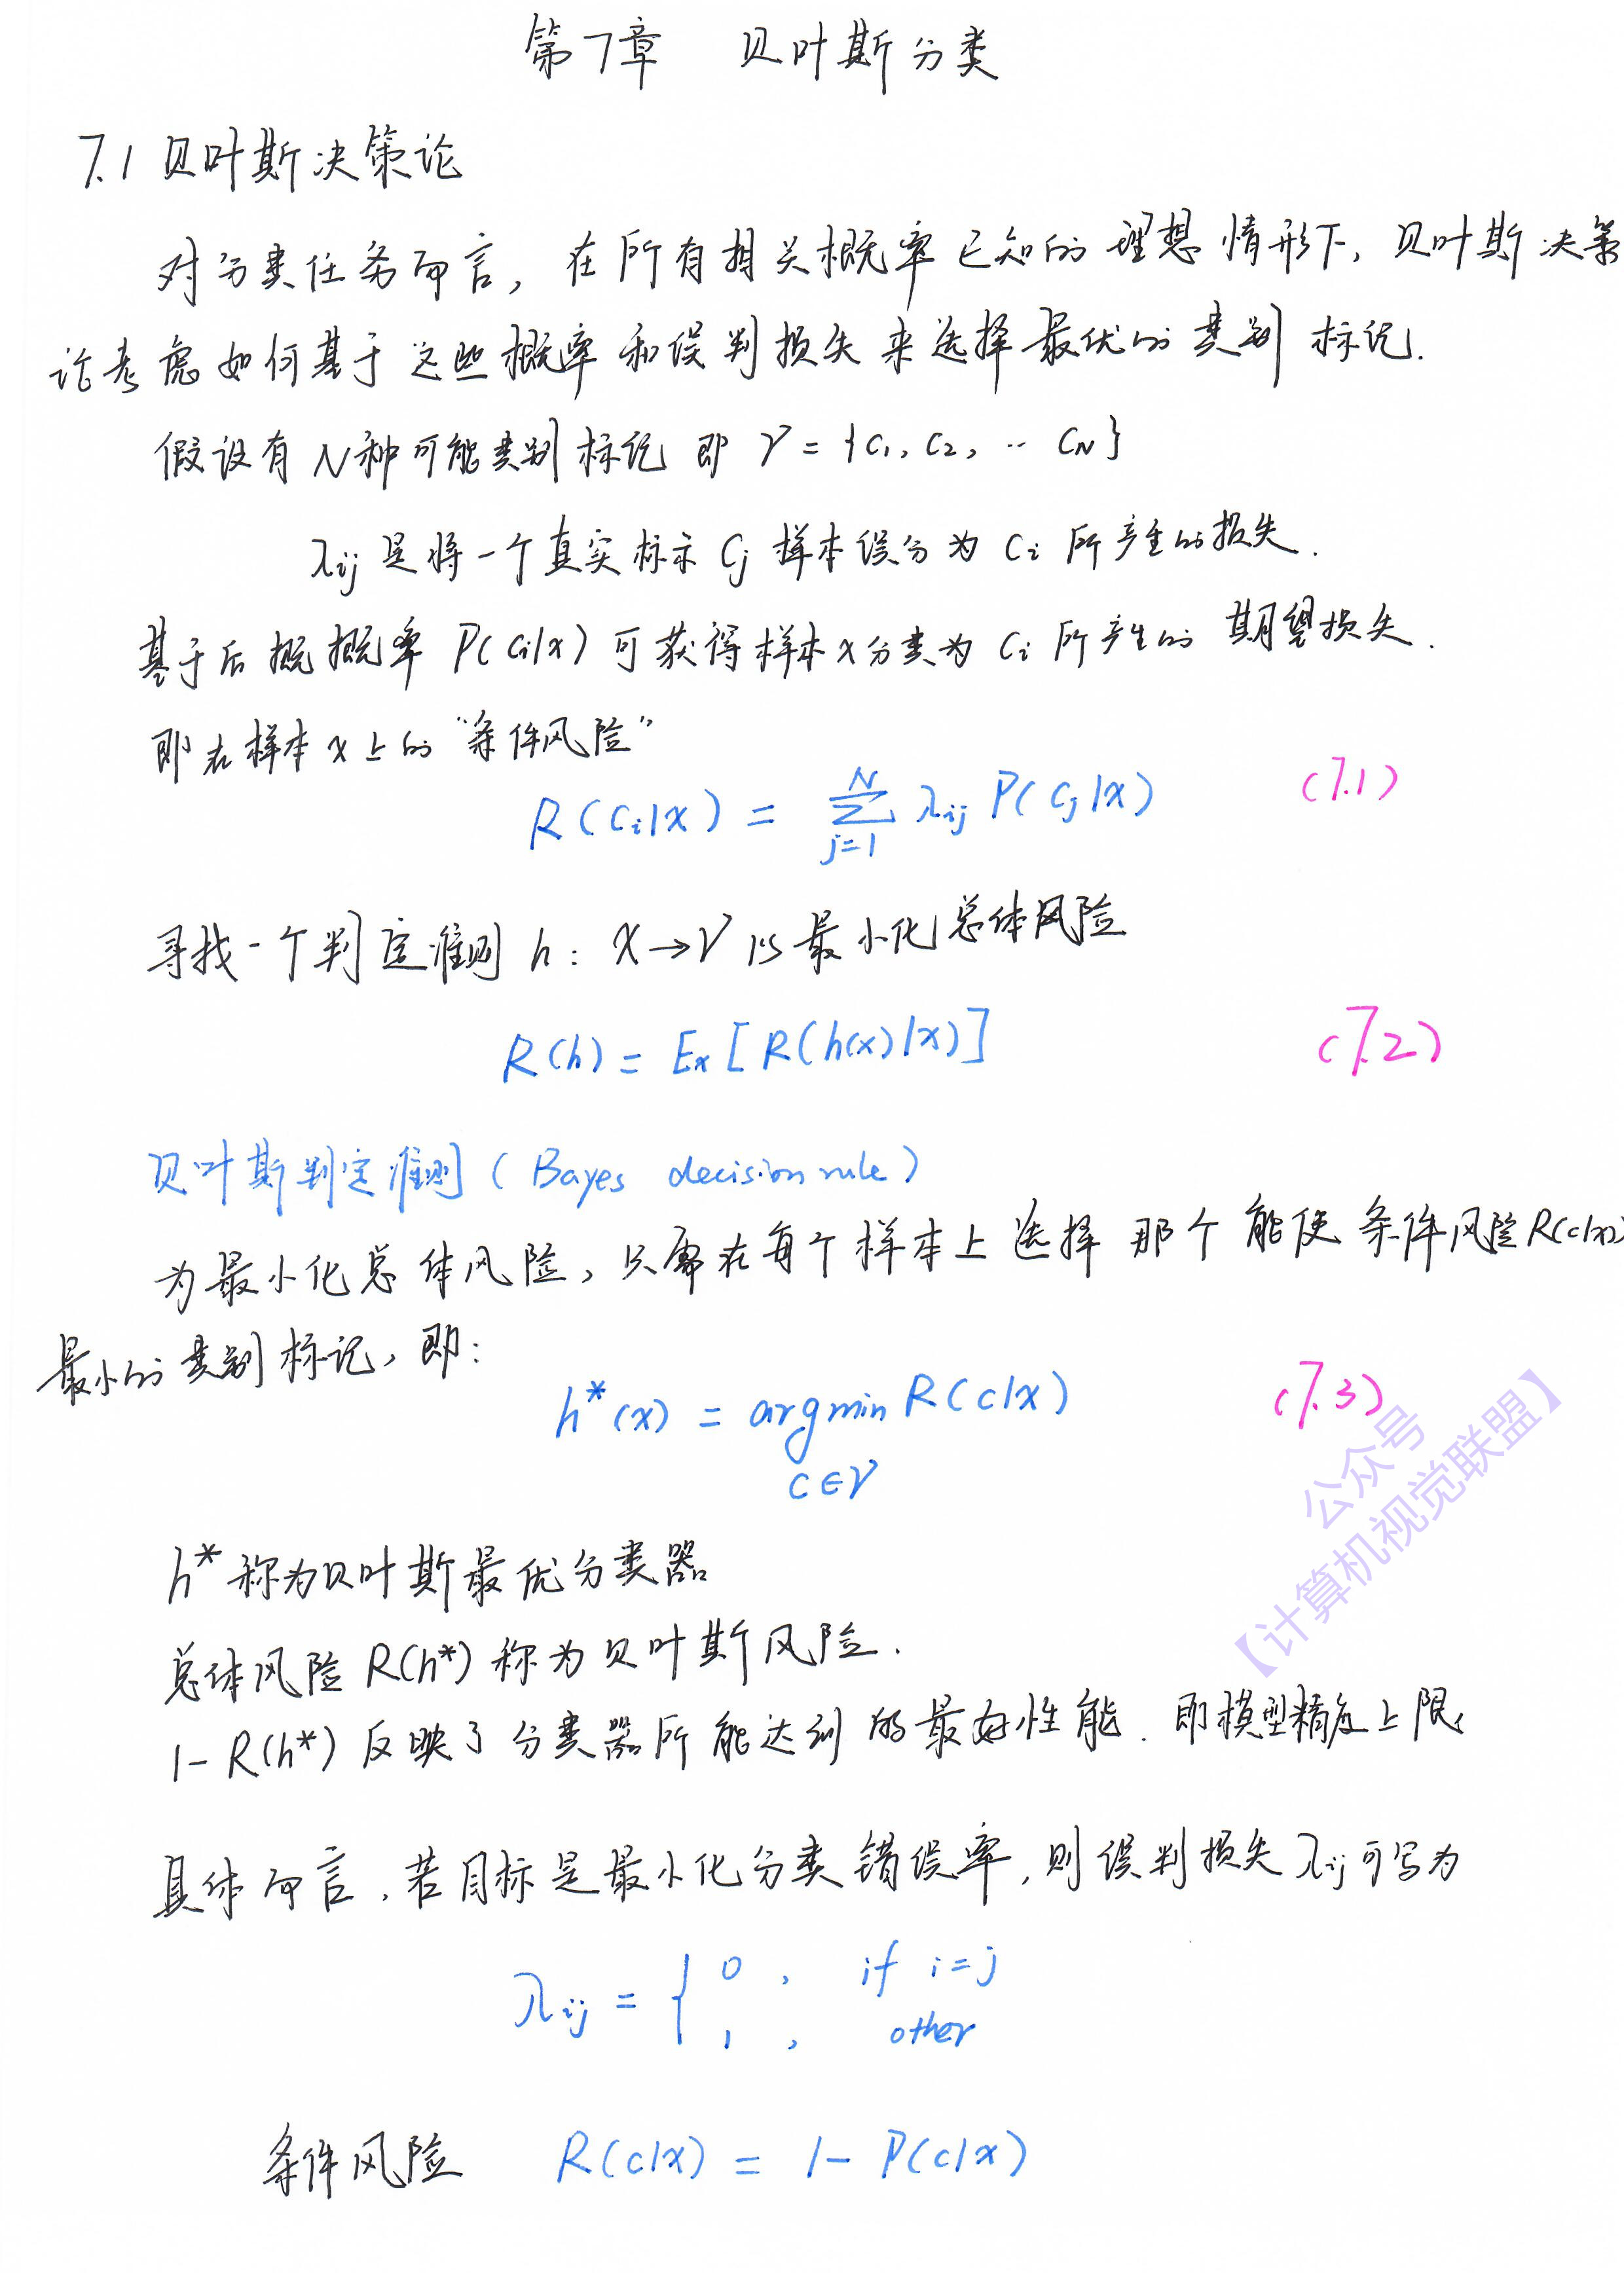 第7章 贝叶斯分类
7.1 贝叶斯决策论
对分类任务而言, 在所有相关概率已知的理想情形下, 贝叶斯决策
论考虑如何基于这些概率和误判损失来选择最优的类别标记.
假设有N种可能类别标记 即 γ = {c₁, c₂, ·· c_N}
λij 是将一个真实标示 Cj 样本误分为 Ci 所产生的损失.
基于后概概率 P(ci|x) 可获得样本x分类为 Ci 所产生的期望损失.
即在样本x上的“条件风险”
R(Ci|x) = ∑_{j=1}^{N} λij P(Cj|x) (7.1)
寻找一个判定准则 h: X→γ 以最小化总体风险
R(h) = Ex[R(h(x)|x)] (7.2)
贝叶斯判定准则 (Bayes decision rule)
为最小化总体风险, 只需在每个样本上选择那个能使条件风险R(c|x)
最小的类别标记, 即:
h*(x) = argmin R(c|x) (7.3)
c∈γ
公众号
【计算机视觉联盟】
h* 称为贝叶斯最优分类器
总体风险 R(h*) 称为贝叶斯风险.
1-R(h*) 反映了分类器所能达到的最好性能. 即模型精度上限.
具体而言, 若目标是最小化分类错误率, 则误判损失λij可写为
λij = { 0 , if i=j
1 , other
条件风险 R(c|x) = 1- P(c|x)